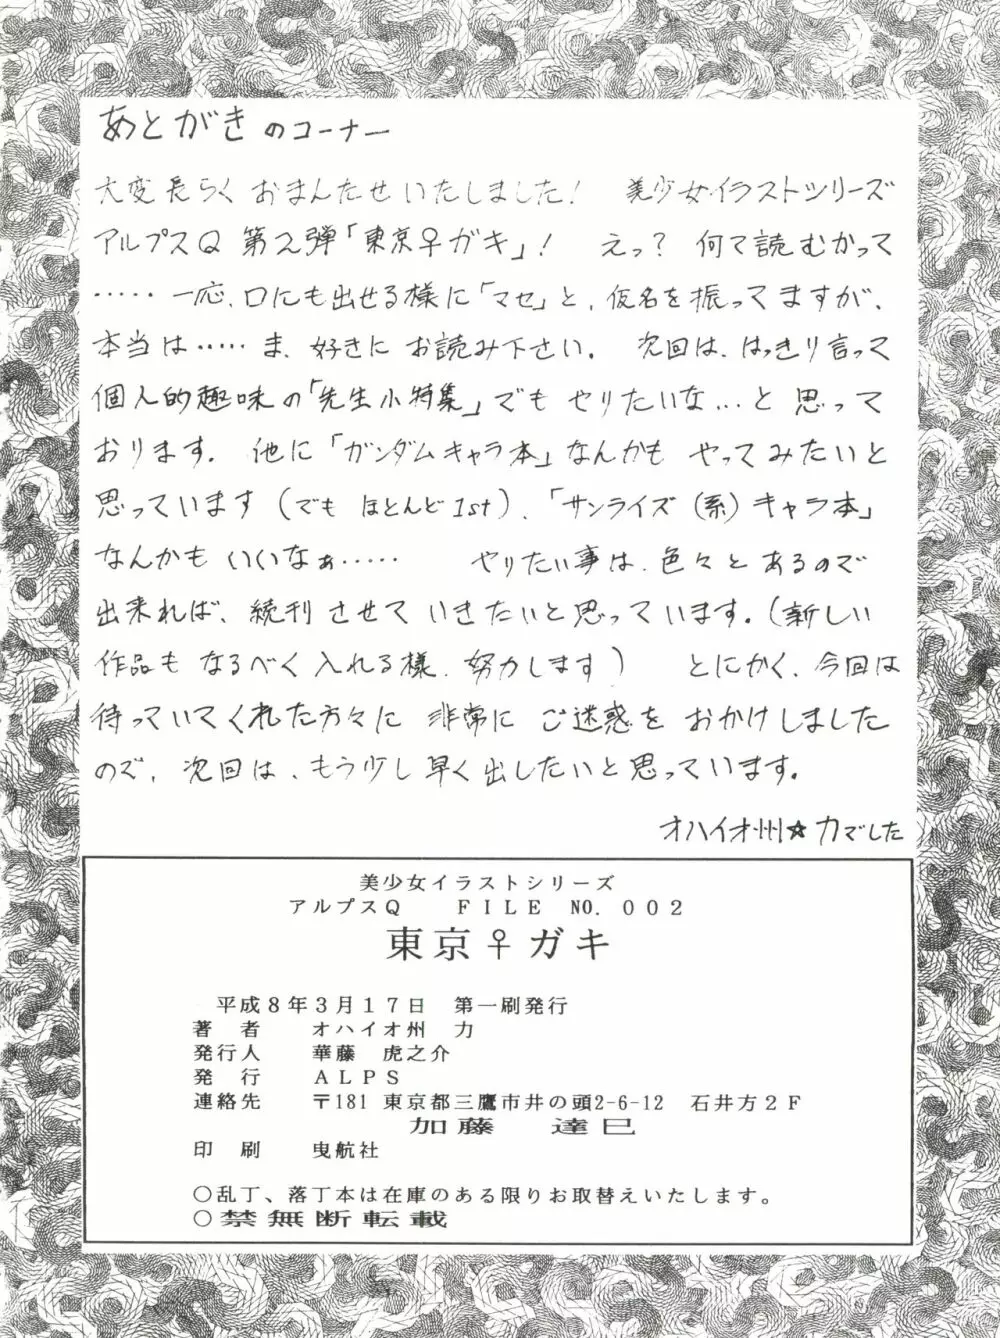 あとがきのコーナー
大変長らくおまんたせいたしました! 美少女イラストシリーズ
アルプスQ 第2弾「東京♀ガキ」! えっ? 何て読むかって
‥‥‥ 一応、口にも出せる様に「マセ」と、仮名を振ってますが、
本当は‥‥‥ま、好きにお読み下さい。 次回は、はっきり言って
個人的趣味の「先生小特集」でもやりたいな…と思って
おります。他に「ガンダムキャラ本」なんかも やってみたいと
思っています(でも ほとんど1st)、「サンライズ(系)キャラ本」
なんかも いいなぁ‥‥‥ やりたい事は、色々とあるので
出来れば、続刊させて いきたいと思っています。(新しい
作品も なるべく入れる様、努力します) とにかく、今回は
待っていてくれた方々に 非常に ご迷惑を おかけしました
ので、次回は、もう少し早く出したいと思っています。
オハイオ州☆力でした
美少女イラストシリーズ
アルプスQ FILE NO.002
東京♀ガキ
平成8年3月17日 第一刷発行
著 者 オハイオ州 力
発行人 華藤 虎之介
発 行 ALPS
連絡先 〒181 東京都三鷹市井の頭2-6-12 石井方2F
加藤 達巳
印 刷 曳航社
○乱丁、落丁本は在庫のある限りお取替えいたします。
○禁無断転載